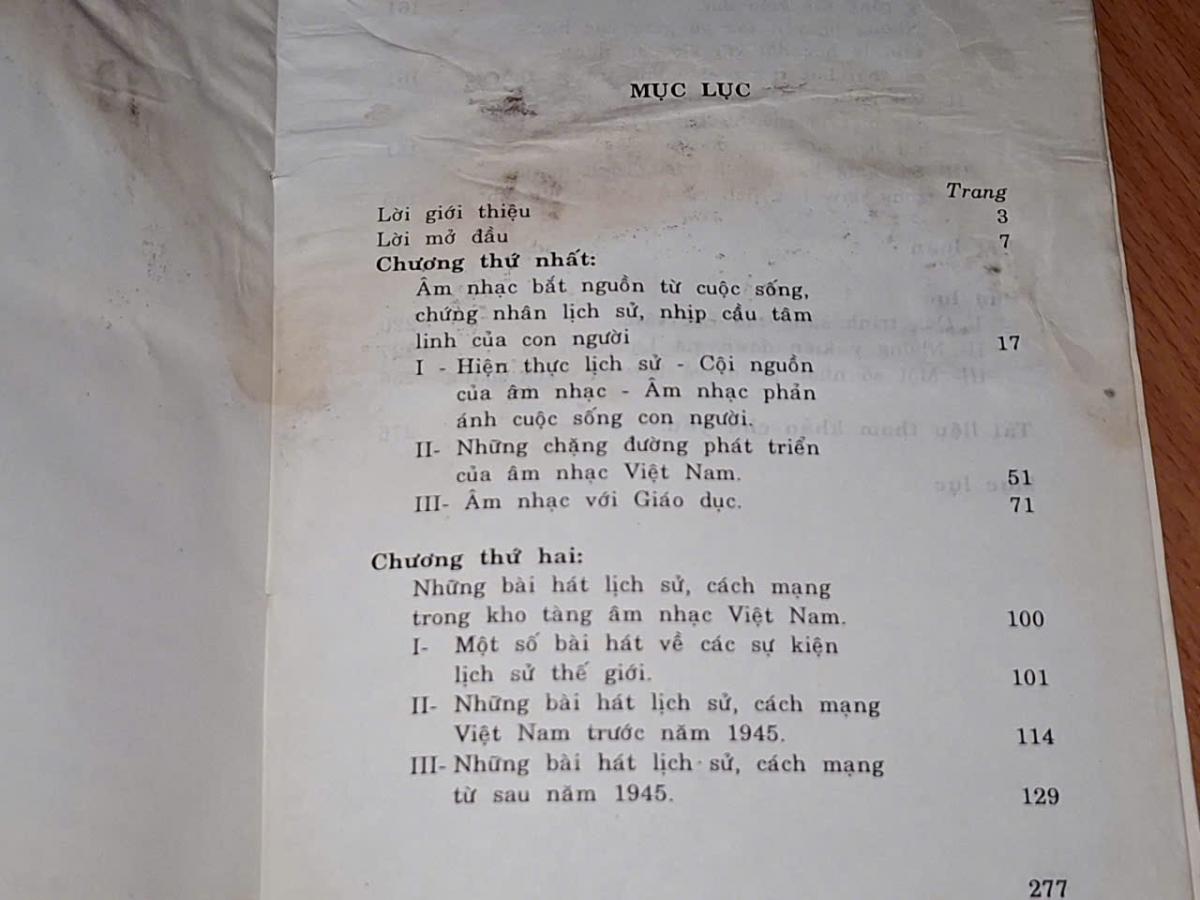 MỤC LỤC
Trang
Lời giới thiệu 3
Lời mở đầu 7
Chương thứ nhất:
Âm nhạc bắt nguồn từ cuộc sống,
chứng nhân lịch sử, nhịp cầu tâm
linh của con người 17
I - Hiện thực lịch sử - Cội nguồn
của âm nhạc - Âm nhạc phản
ánh cuộc sống con người.
II- Những chặng đường phát triển
của âm nhạc Việt Nam. 51
III- Âm nhạc với Giáo dục. 71
Chương thứ hai:
Những bài hát lịch sử, cách mạng
trong kho tàng âm nhạc Việt Nam. 100
I- Một số bài hát về các sự kiện
lịch sử thế giới. 101
II- Những bài hát lịch sử, cách mạng
Việt Nam trước năm 1945. 114
III- Những bài hát lịch sử, cách mạng
từ sau năm 1945. 129
277